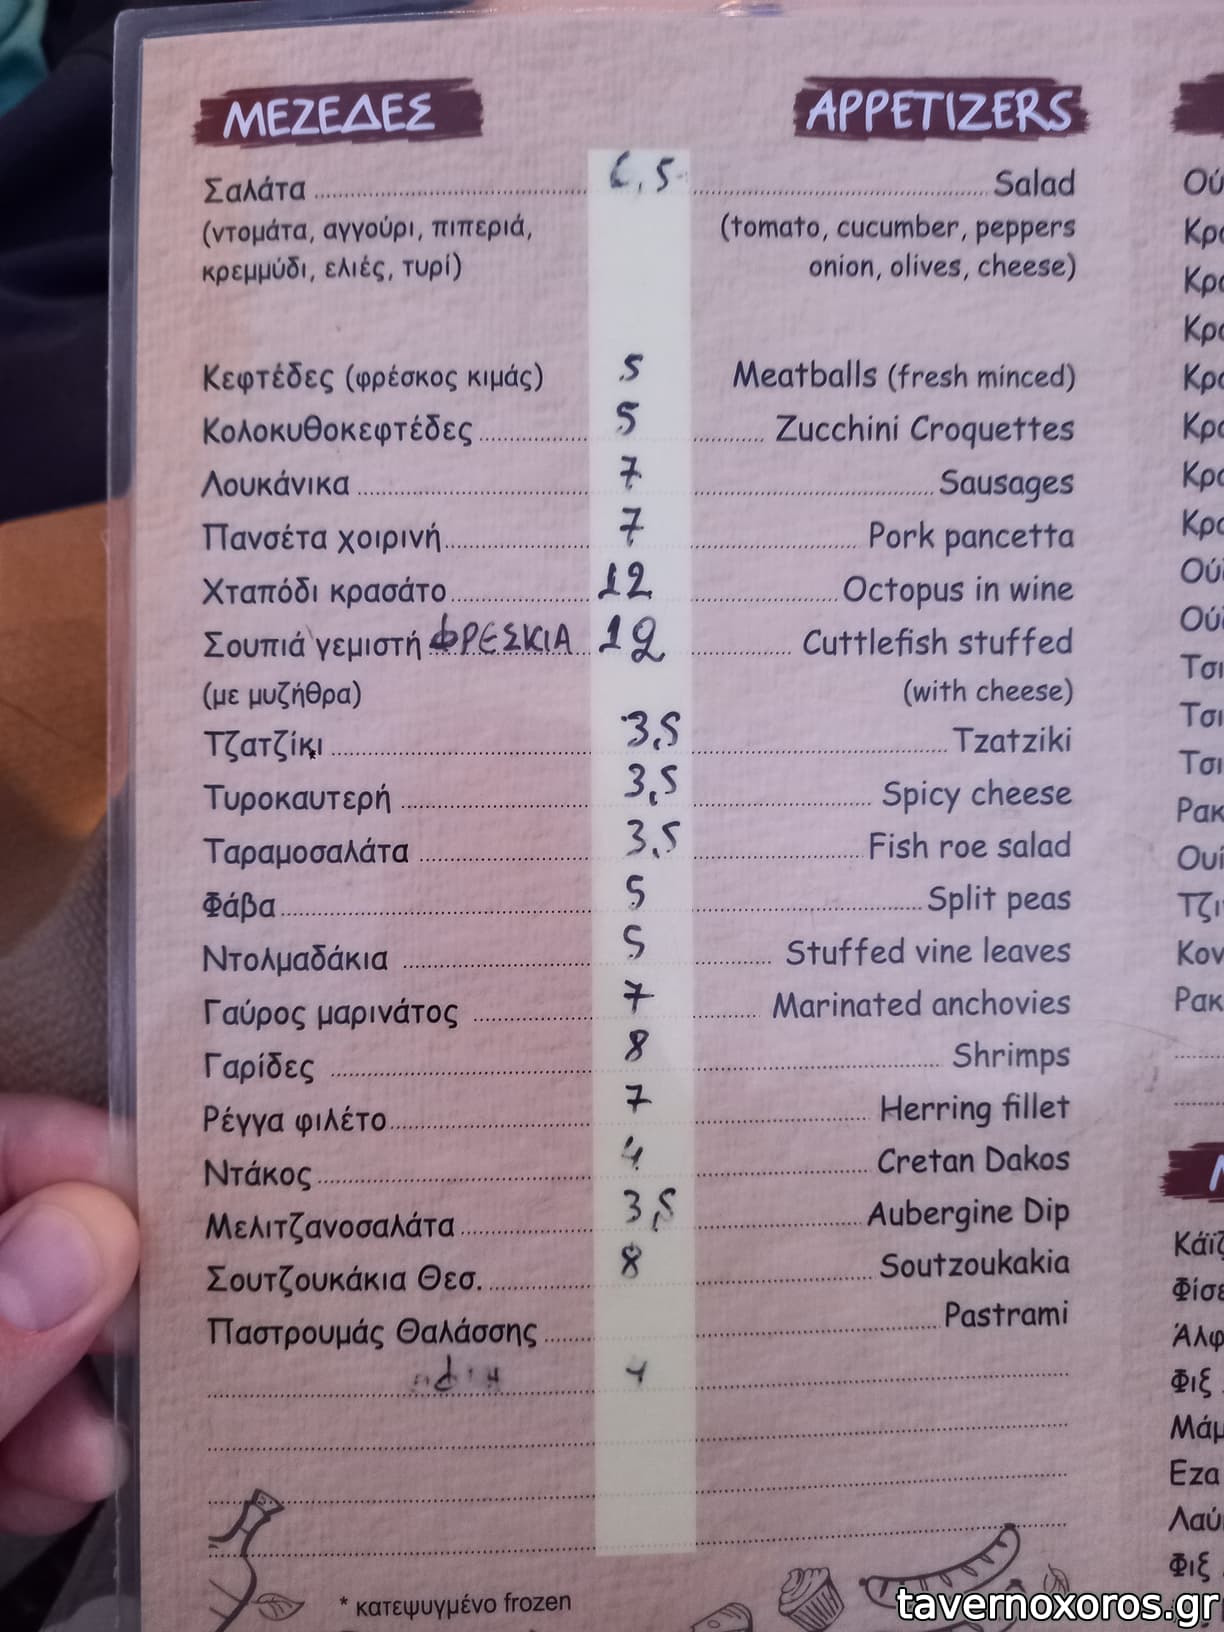 ΜΕΖΕΔΕΣ APPETIZERS
Σαλάτα 6,5 Salad
(ντομάτα, αγγούρι, πιπεριά, (tomato, cucumber, peppers
κρεμμύδι, ελιές, τυρί) onion, olives, cheese)
Κεφτέδες (φρέσκος κιμάς) 5 Meatballs (fresh minced)
Κολοκυθοκεφτέδες 5 Zucchini Croquettes
Λουκάνικα 7 Sausages
Πανσέτα χοιρινή 7 Pork pancetta
Χταπόδι κρασάτο 12 Octopus in wine
Σουπιά γεμιστή ΦΡΕΣΚΙΑ 12 Cuttlefish stuffed
(με μυζήθρα) (with cheese)
Τζατζίκι 3,5 Tzatziki
Τυροκαυτερή 3,5 Spicy cheese
Ταραμοσαλάτα 3,5 Fish roe salad
Φάβα 5 Split peas
Ντολμαδάκια 5 Stuffed vine leaves
Γαύρος μαρινάτος 7 Marinated anchovies
Γαρίδες 8 Shrimps
Ρέγγα φιλέτο 7 Herring fillet
Ντάκος 4 Cretan Dakos
Μελιτζανοσαλάτα 3,5 Aubergine Dip
Σουτζουκάκια Θεσ. 8 Soutzoukakia
Παστρουμάς Θαλάσσης Pastrami
4
* κατεψυγμένο frozen
Εζα
Φιξ
tavernoxoros.gr